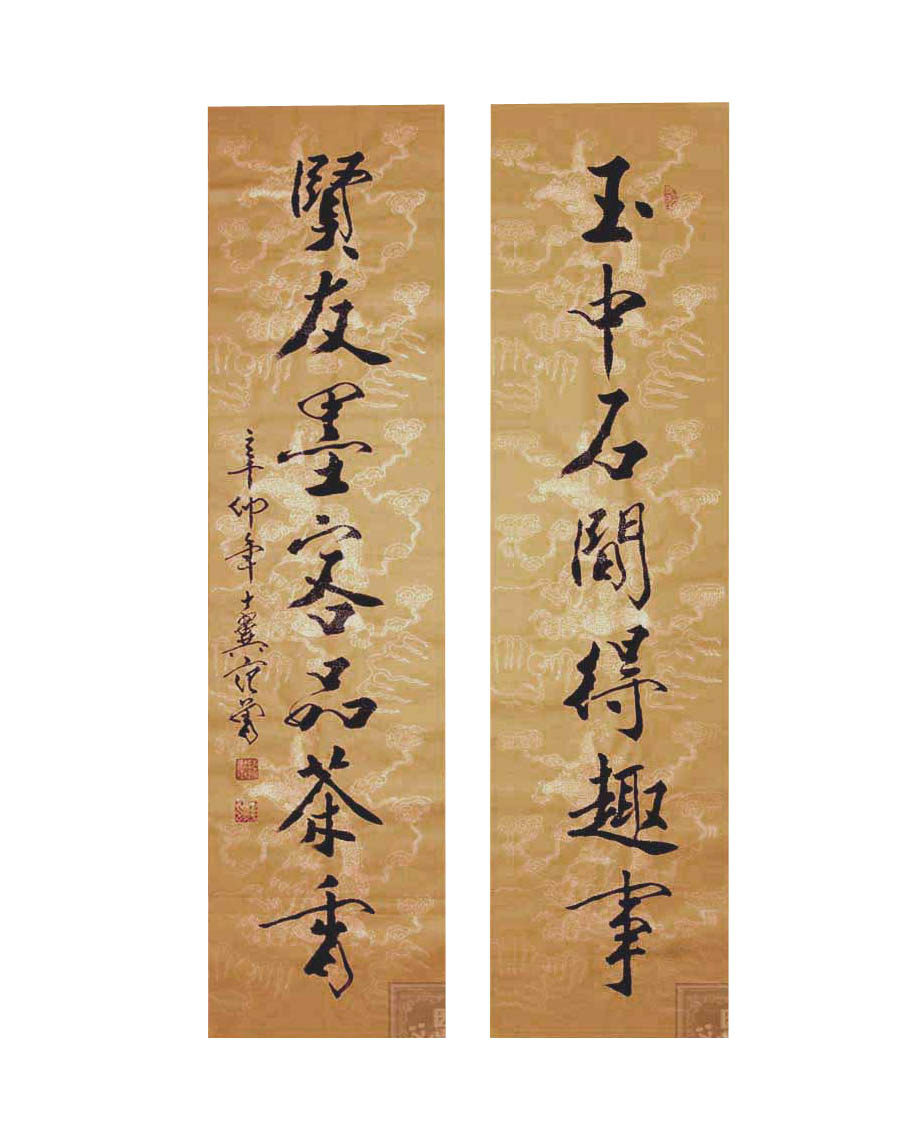 玉中石闻得趣事
贤友墨客品茶香
辛卯年